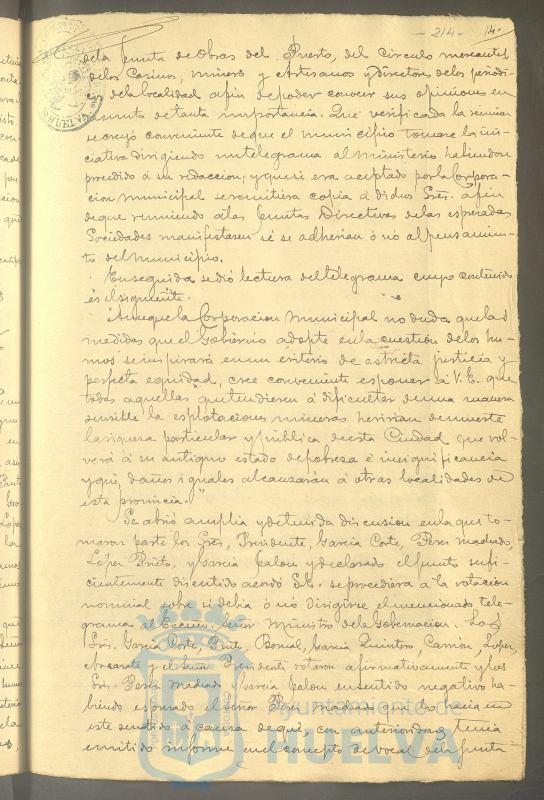 - 214 -
14.
de la Junta de Obras del Puerto, del Circulo mercantil
de los Casinos, minero y Artesanos y Directores de los periodi-
cos de la localidad a fin de poder conocer sus opiniones en
asunto de tanta importancia. Que verificada la reunion
se creyó conveniente de que el municipio tomase la ini-
ciativa dirigiendo un telegrama al Ministerio habiendose
procedido á su redaccion; y que si era aceptado por la Corpora-
cion municipal se remitiera copia á dichos Sres. a fin
de que reuniendo á las Juntas Directivas de las espresadas
Sociedades manifestasen si se adherian ó nó al pensamien-
to del municipio.
Enseguida se dió lectura del telegrama cuyo contenido
es el siguiente.
"Aunque la Corporacion Municipal no duda que las
medidas que el Gobierno adopte en la cuestión de los hu-
mos se inspirará en un criterio de estricta justicia y
perfecta equidad, cree conveniente esponer á V. E. que
todas aquellas que tendiesen á dificultar de una manera
sensible la esplotaciones mineras heririan de muerte
la riqueza particular y pública de esta Ciudad que vol-
verá á su antiguo estado de pobreza é insignificancia
y que daños iguales alcanzarán á otras localidades de
esta provincia."
Se abrió amplia y detenida discusion en la que to-
maron parte los Sres, Presidente, Garcia Corte, Perez Madrado,
López Prieto, y Garcia Jalon y declarado el punto sufi-
cientemente discutido acordó se procediera á la votacion
nominal sobre si debia ó nó dirigirse el mencionado tele-
grama al Excmo. Señor Ministro de la Gobernacion. Los
Sres. Garcia Corte, Pinto, Bernal, Garcia Quintero, Carrion, López,
y el Señor Presidente votaron afirmativamente y los
Sres. Perez Madrado y Garcia Jalon en sentido negativo ha-
biendo espresado el señor Perez Madrado que lo hacia en
este sentido á causa de que, con anterioridad tenia
emitido informe en el concepto de vocal de la Junta
Ayuntamiento de
HUELVA